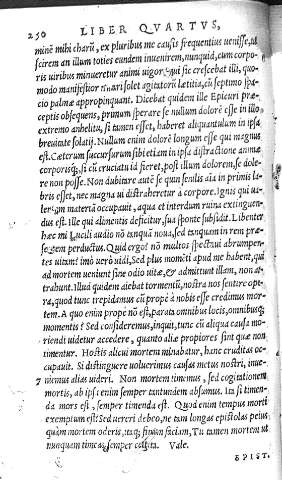 250 LIBER QVARTVS,
minē mihi charū, ex pluribus me causis frequentius venisse, ad
scirem an illum toties eundem inuenirem, nunquid, cum corpo-
ris uiribus minueretur animi uigor, qui sic crescebat illi, quo-
modo manifestior notari solet agitatorū lætitia, cū septimo spa-
cio palmæ appropinquant. Dicebat quidem ille Epicuri præ-
ceptis obsequens, primum sperare se nullum dolorē esse in illo
extremo anhelitu, si tamen esset, habere aliquantulum in ipsa
breuitate solatij. Nullum enim dolorē longum esse qui magnus
est. Cæterum succursurum sibi etiam in ipsa distractione animæ
corporisq;, si cū cruciatu id fieret, post illum dolorem, se dole-
re non posse. Non dubitare autē se quin senilis aīa in primis la-
bris esset, nec magna ui distraheretur à corpore. Ignis qui ui-
lentem materiā occupauit, aqua et interdum ruina extinguen-
dus est. Ille qui alimentis deficitur, sua sponte subsidit. Libenter
hæc mi Luculi audio nō tanquā noua, sed tanquam in rem præ-
sentem perductus. Quid ergo? nō multos spectaui abrumpen-
tes uitam? imò uerò uidi, Sed plus momēti apud me habent, qui
ad mortem ueniunt sine odio uitæ, & admittunt illam, non at-
trahunt. Illud quidem aiebat tormentū, nostra nos sentire ope-
ra, quod tunc trepidamus cū prope à nobis esse credimus mor-
tem. A quo enim prope nō est, parata omnibus locis, omnibusq;
momentis? Sed consideremus, inquit, tunc cū aliqua causa mo-
riendi uidetur accedere, quanto aliæ propiores sint quæ non
timentur. Hostis alicui mortem minabatur, hanc cruditas oc-
cupauit. Si distinguere uoluerimus causas metus nostri, inue-
niemus alias uideri. Non mortem timemus, sed cogitationem
mortis, ab ipsa enim semper tantundem absumus. Ita si timen-
da mors est, semper timenda est. Quod enim tempus morti
exemptum est? Sed uereri debeo, ne tam longas epistolas peius
quàm mortem oderis, itaq; finem faciam, Tu tamen mortem ut
nunquam timeas, semper cogita. Vale.
EPIST.